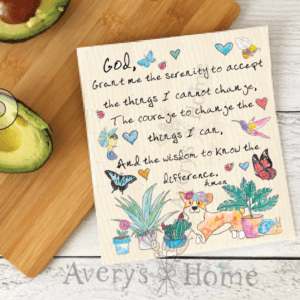 God,
Grant me the serenity to accept
the things I cannot change,
The courage to change the
things I can,
And the wisdom to know the
difference.
Amen
Avery's Home